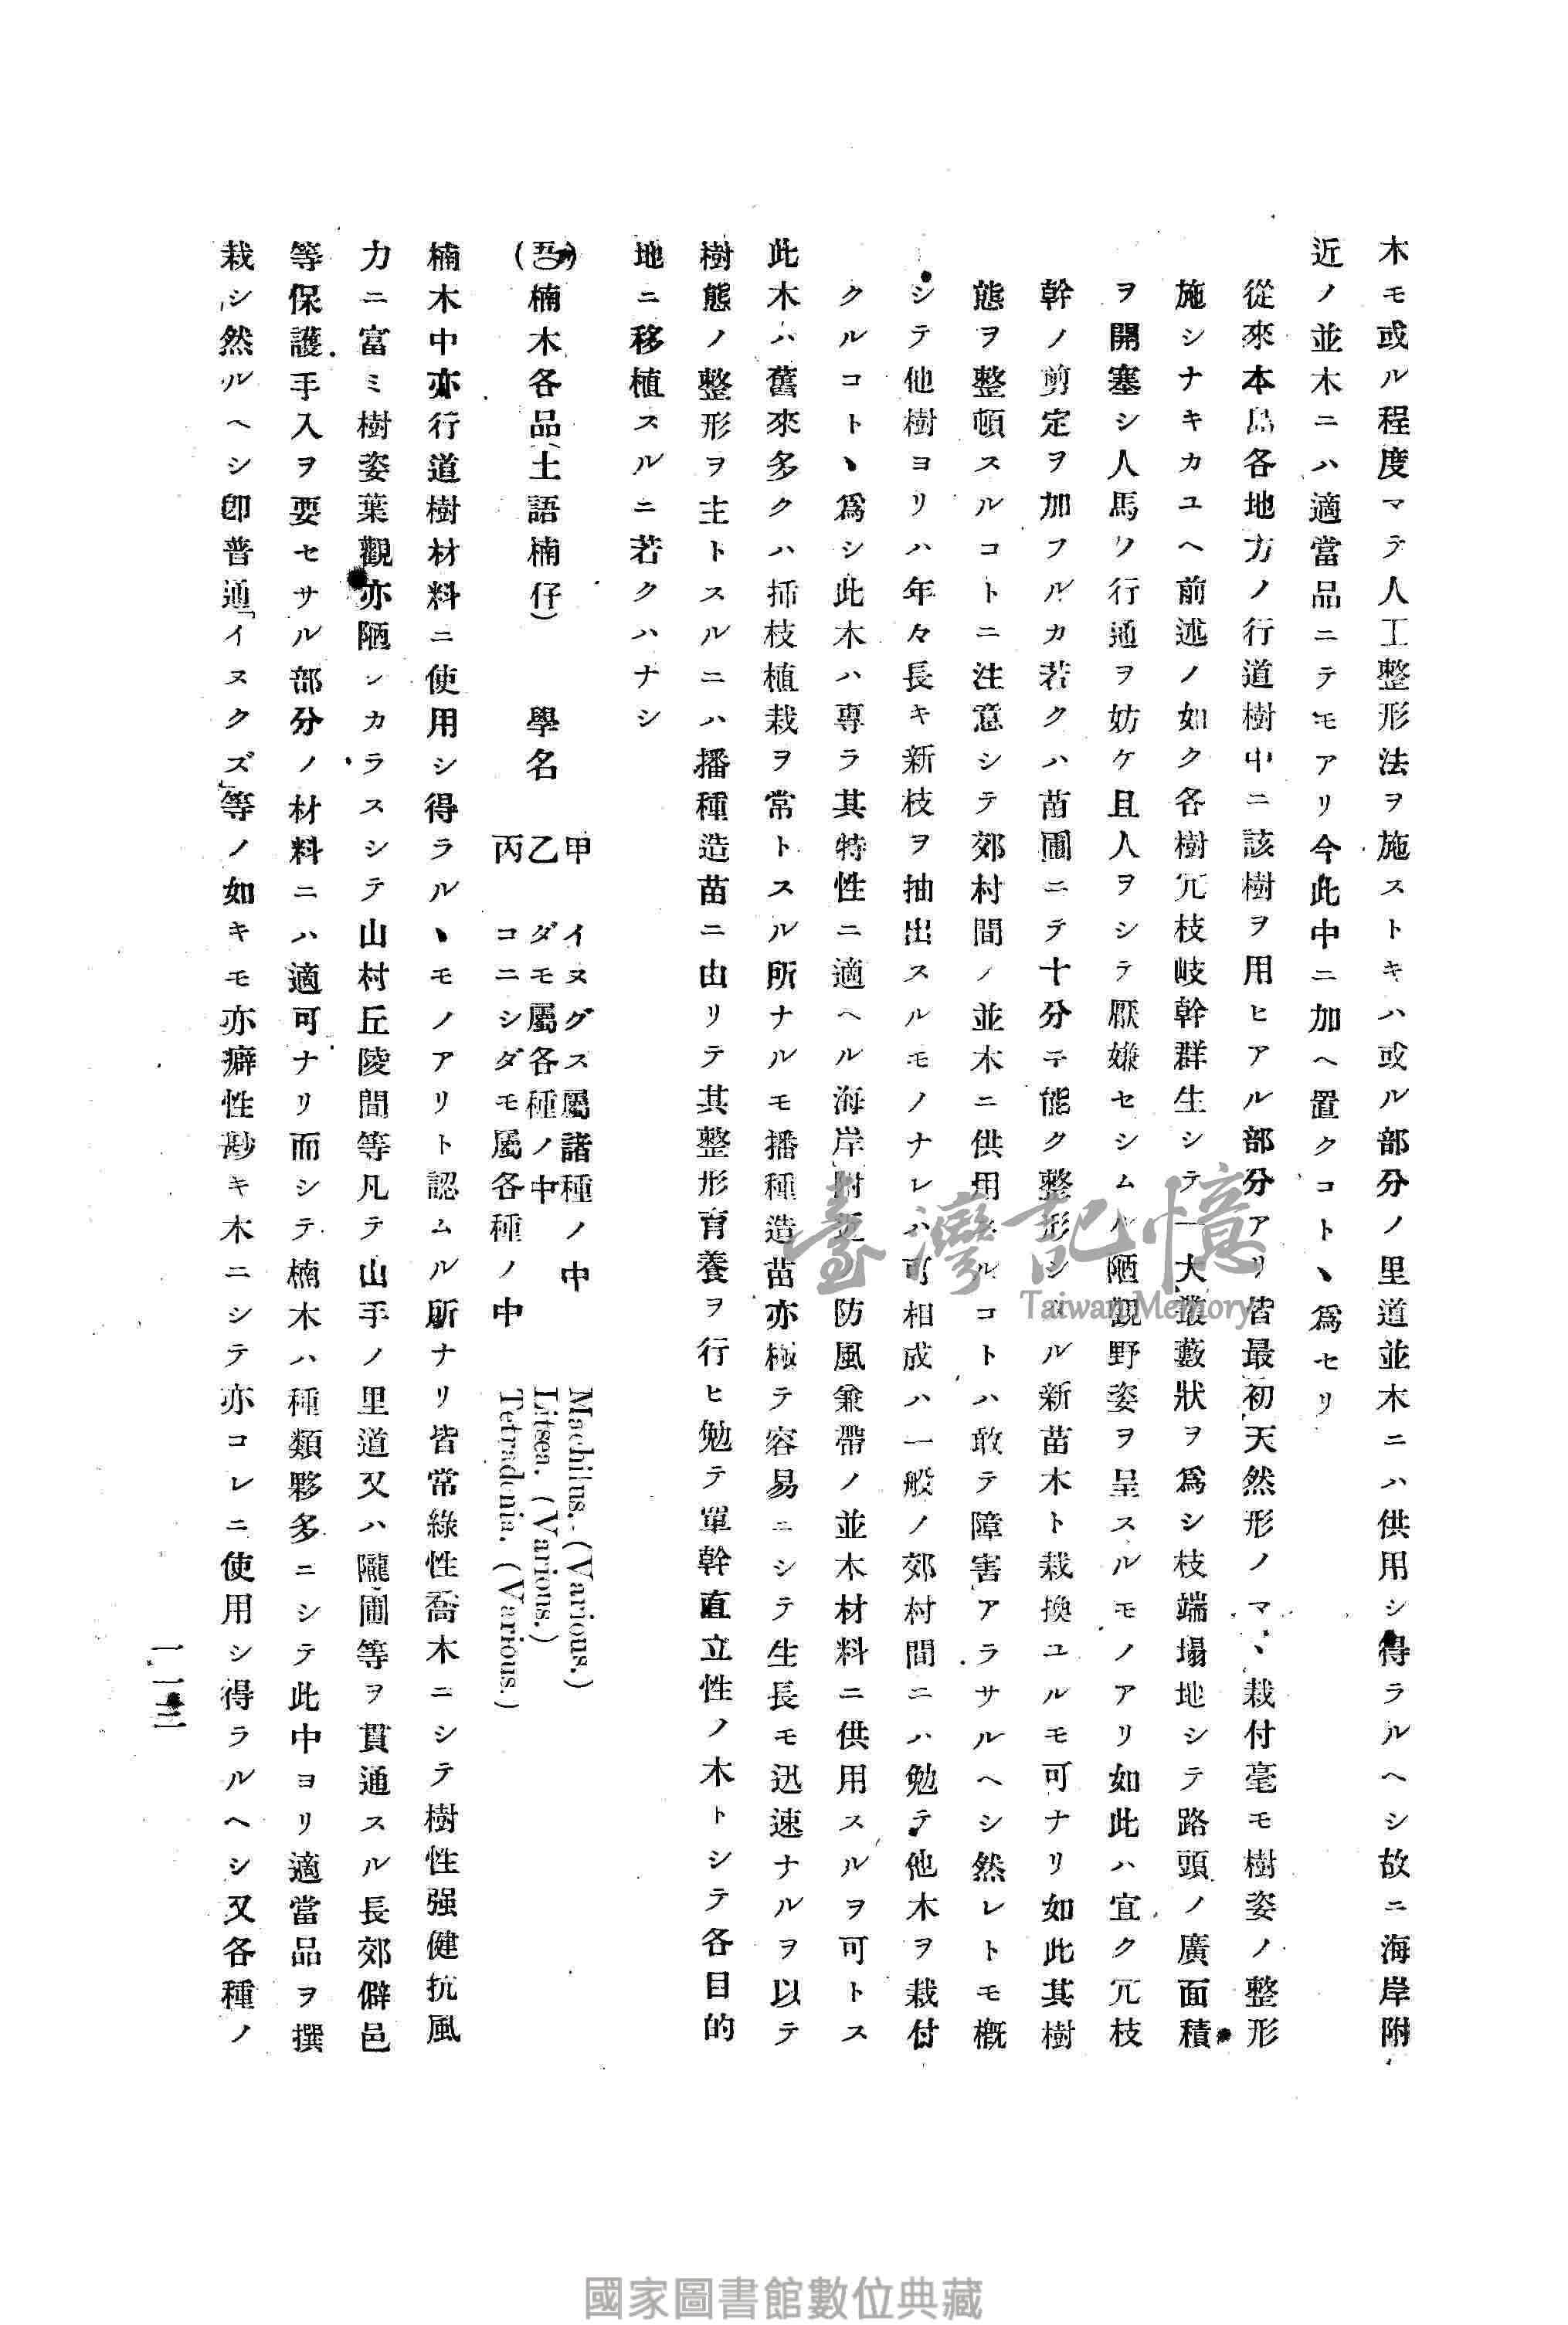 木モ或ル程度マテ人工整形法ヲ施ストキハ或ル部分ノ里道並木ニハ供用シ得ラルヘシ故ニ海岸附
近ノ並木ニハ適當品ニテモアリ今此中ニ加ヘ置クコトヽ爲セリ
從來本島各地方ノ行道樹中ニ該樹ヲ用ヒアル部分アリ皆最初天然形ノマヽ栽付毫モ樹姿ノ整形
施シナキカユヘ前述ノ如ク各樹冗枝岐幹群生シテ一大叢藪狀ヲ爲シ枝端塌地シテ路頭ノ廣面積
ヲ開塞シ人馬ノ行通ヲ妨ケ且人ヲシテ厭嫌セシムル陋觀野姿ヲ呈スルモノアリ如此ハ宜ク冗枝
幹ノ剪定ヲ加フルカ若クハ苗圃ニテ十分ニ能ク整形シタル新苗木ト栽換ユルモ可ナリ如此其樹
態ヲ整頓スルコトニ注意シテ郊村間ノ並木ニ供用スルコトハ敢テ障害アラサルヘシ然レトモ概
シテ他樹ヨリハ年々長キ新枝ヲ抽出スルモノナレハ可相成ハ一般ノ郊村間ニハ勉テ他木ヲ栽付
クルコトヽ爲シ此木ハ專ラ其特性ニ適ヘル海岸附近ノ防風兼帶ノ並木材料ニ供用スルヲ可トス
此木ハ舊來多クハ揷枝植栽ヲ常トスル所ナルモ播種造苗亦極テ容易ニシテ生長モ迅速ナルヲ以テ
樹態ノ整形ヲ主トスルニハ播種造苗ニ由リテ其整形育養ヲ行ヒ勉テ單幹直立性ノ木トシテ各目的
地ニ移植スルニ若クハナシ
楠木各品(土語楠仔) 學名
甲 イヌグス屬諸種ノ中 Machilus. (Various.)
乙 ダモ屬各種ノ中 Litsea. (Various.)
丙 コニシダモ屬各種ノ中 Tetradenia. (Various.)
楠木中亦行道樹材料ニ使用シ得ラルヽモノアリト認ムル所ナリ皆常綠性喬木ニシテ樹性强健抗風
力ニ富ミ樹姿葉觀亦陋シカラスシテ山村丘陵間等凡テ山手ノ里道又ハ隴圃等ヲ貫通スル長郊僻邑
等保護手入ヲ要セサル部分ノ材料ニハ適可ナリ而シテ楠木ハ種類夥多ニシテ此中ヨリ適當品ヲ撰
栽シ然ルヘシ卽普通「イヌクズ」等ノ如キモ亦癖性尠キ木ニシテ亦コレニ使用シ得ラルヘシ又各種ノ
一一三
臺灣記憶
Taiwan Memory
國家圖書館數位典藏